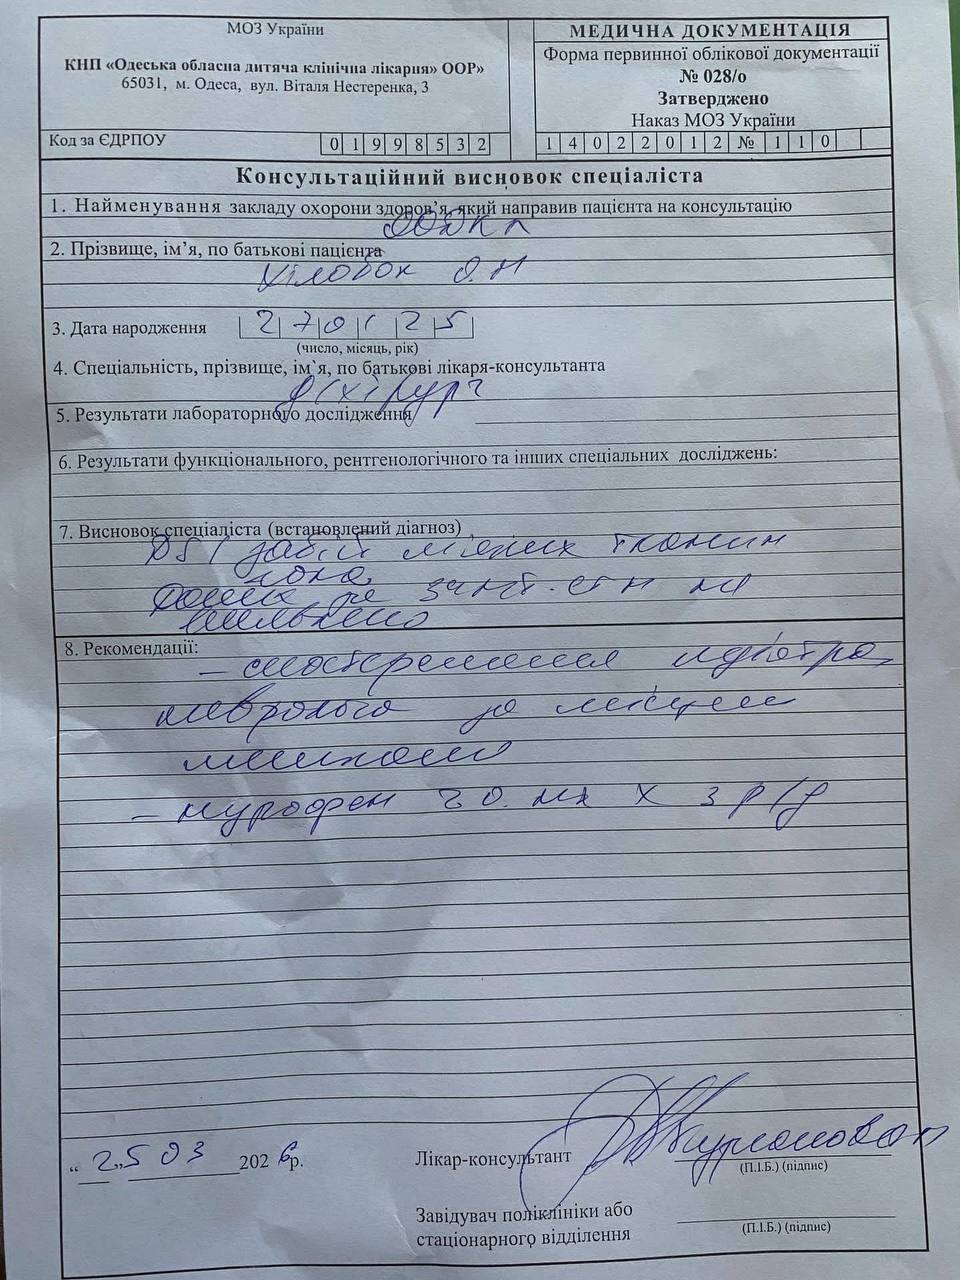 МОЗ України
КНП «Одеська обласна дитяча клінічна лікарня» ООР»
65031, м. Одеса, вул. Віталя Нестеренка, 3
Код за ЄДРПОУ 0 1 9 9 8 5 3 2
МЕДИЧНА ДОКУМЕНТАЦІЯ
Форма первинної облікової документації
№ 028/о
Затверджено
Наказ МОЗ України
1 4 0 2 2 0 1 2 № 1 1 0
Консультаційний висновок спеціаліста
1. Найменування закладу охорони здоров’я, який направив пацієнта на консультацію
ООДКЛ
2. Прізвище, ім’я, по батькові пацієнта
О. М
3. Дата народження 2 7 0 1 2 5
(число, місяць, рік)
4. Спеціальність, прізвище, ім`я, по батькові лікаря-консультанта
д/хірург
5. Результати лабораторного дослідження
6. Результати функціонального, рентгенологічного та інших спеціальних досліджень:
7. Висновок спеціаліста (встановлений діагноз)
DS / забій мяких тканин
лоба
на
8. Рекомендації:
- спостереження педіатра,
невролога за місцем
- нурофен мл х 3 р/д
“25 03 2026р.
Лікар-консультант
(П.І.Б.) (підпис)
Завідувач поліклініки або
стаціонарного відділення
(П.І.Б.) (підпис)